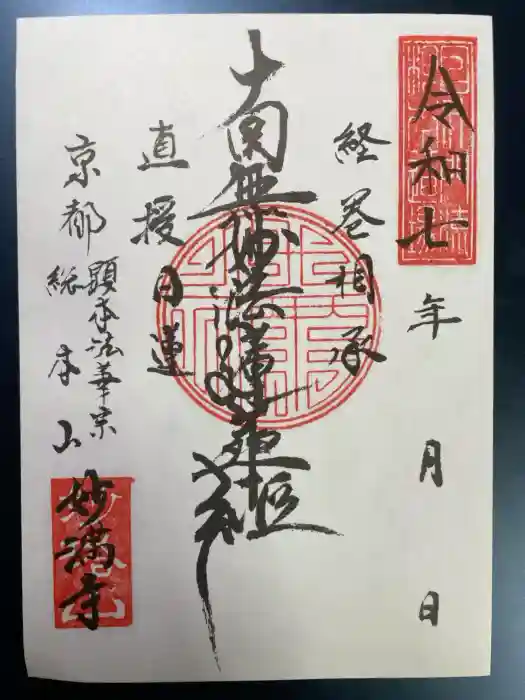 令和七年 月 日
経巻相承
南無妙法蓮華経
直授日蓮
顕本法華宗
京都 総本山
妙満寺